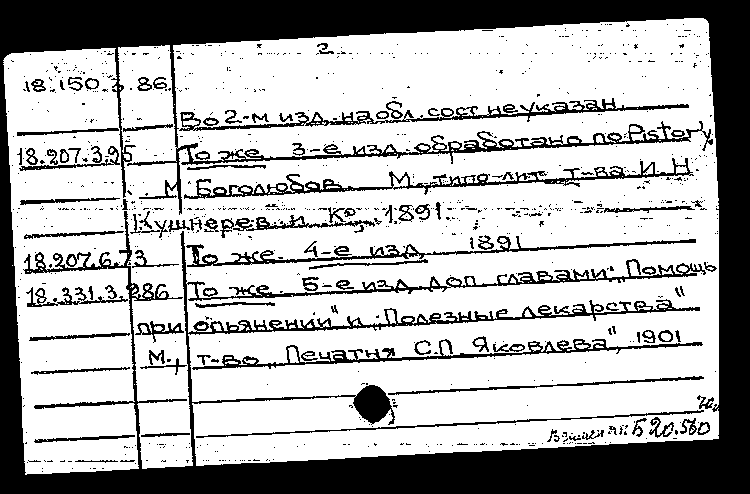 2
18.150.3.86
Во 2-м изд. на обл. сост. не указан.
18.207.3.95 То же. 3-е изд. обработано по Pistor'у
М. Боголюбов. М., типо-лит. т-ва И.Н.
Кушнерев и К°, 1891.
18.207.6.73 То же. 4-е изд. 1891
18.331.3.286 То же. 5-е изд. доп. главами: „Помощь
при опьянении" и „Полезные лекарства"
М., т-во „Печатня С.П. Яковлева", 1901
Б 20.560